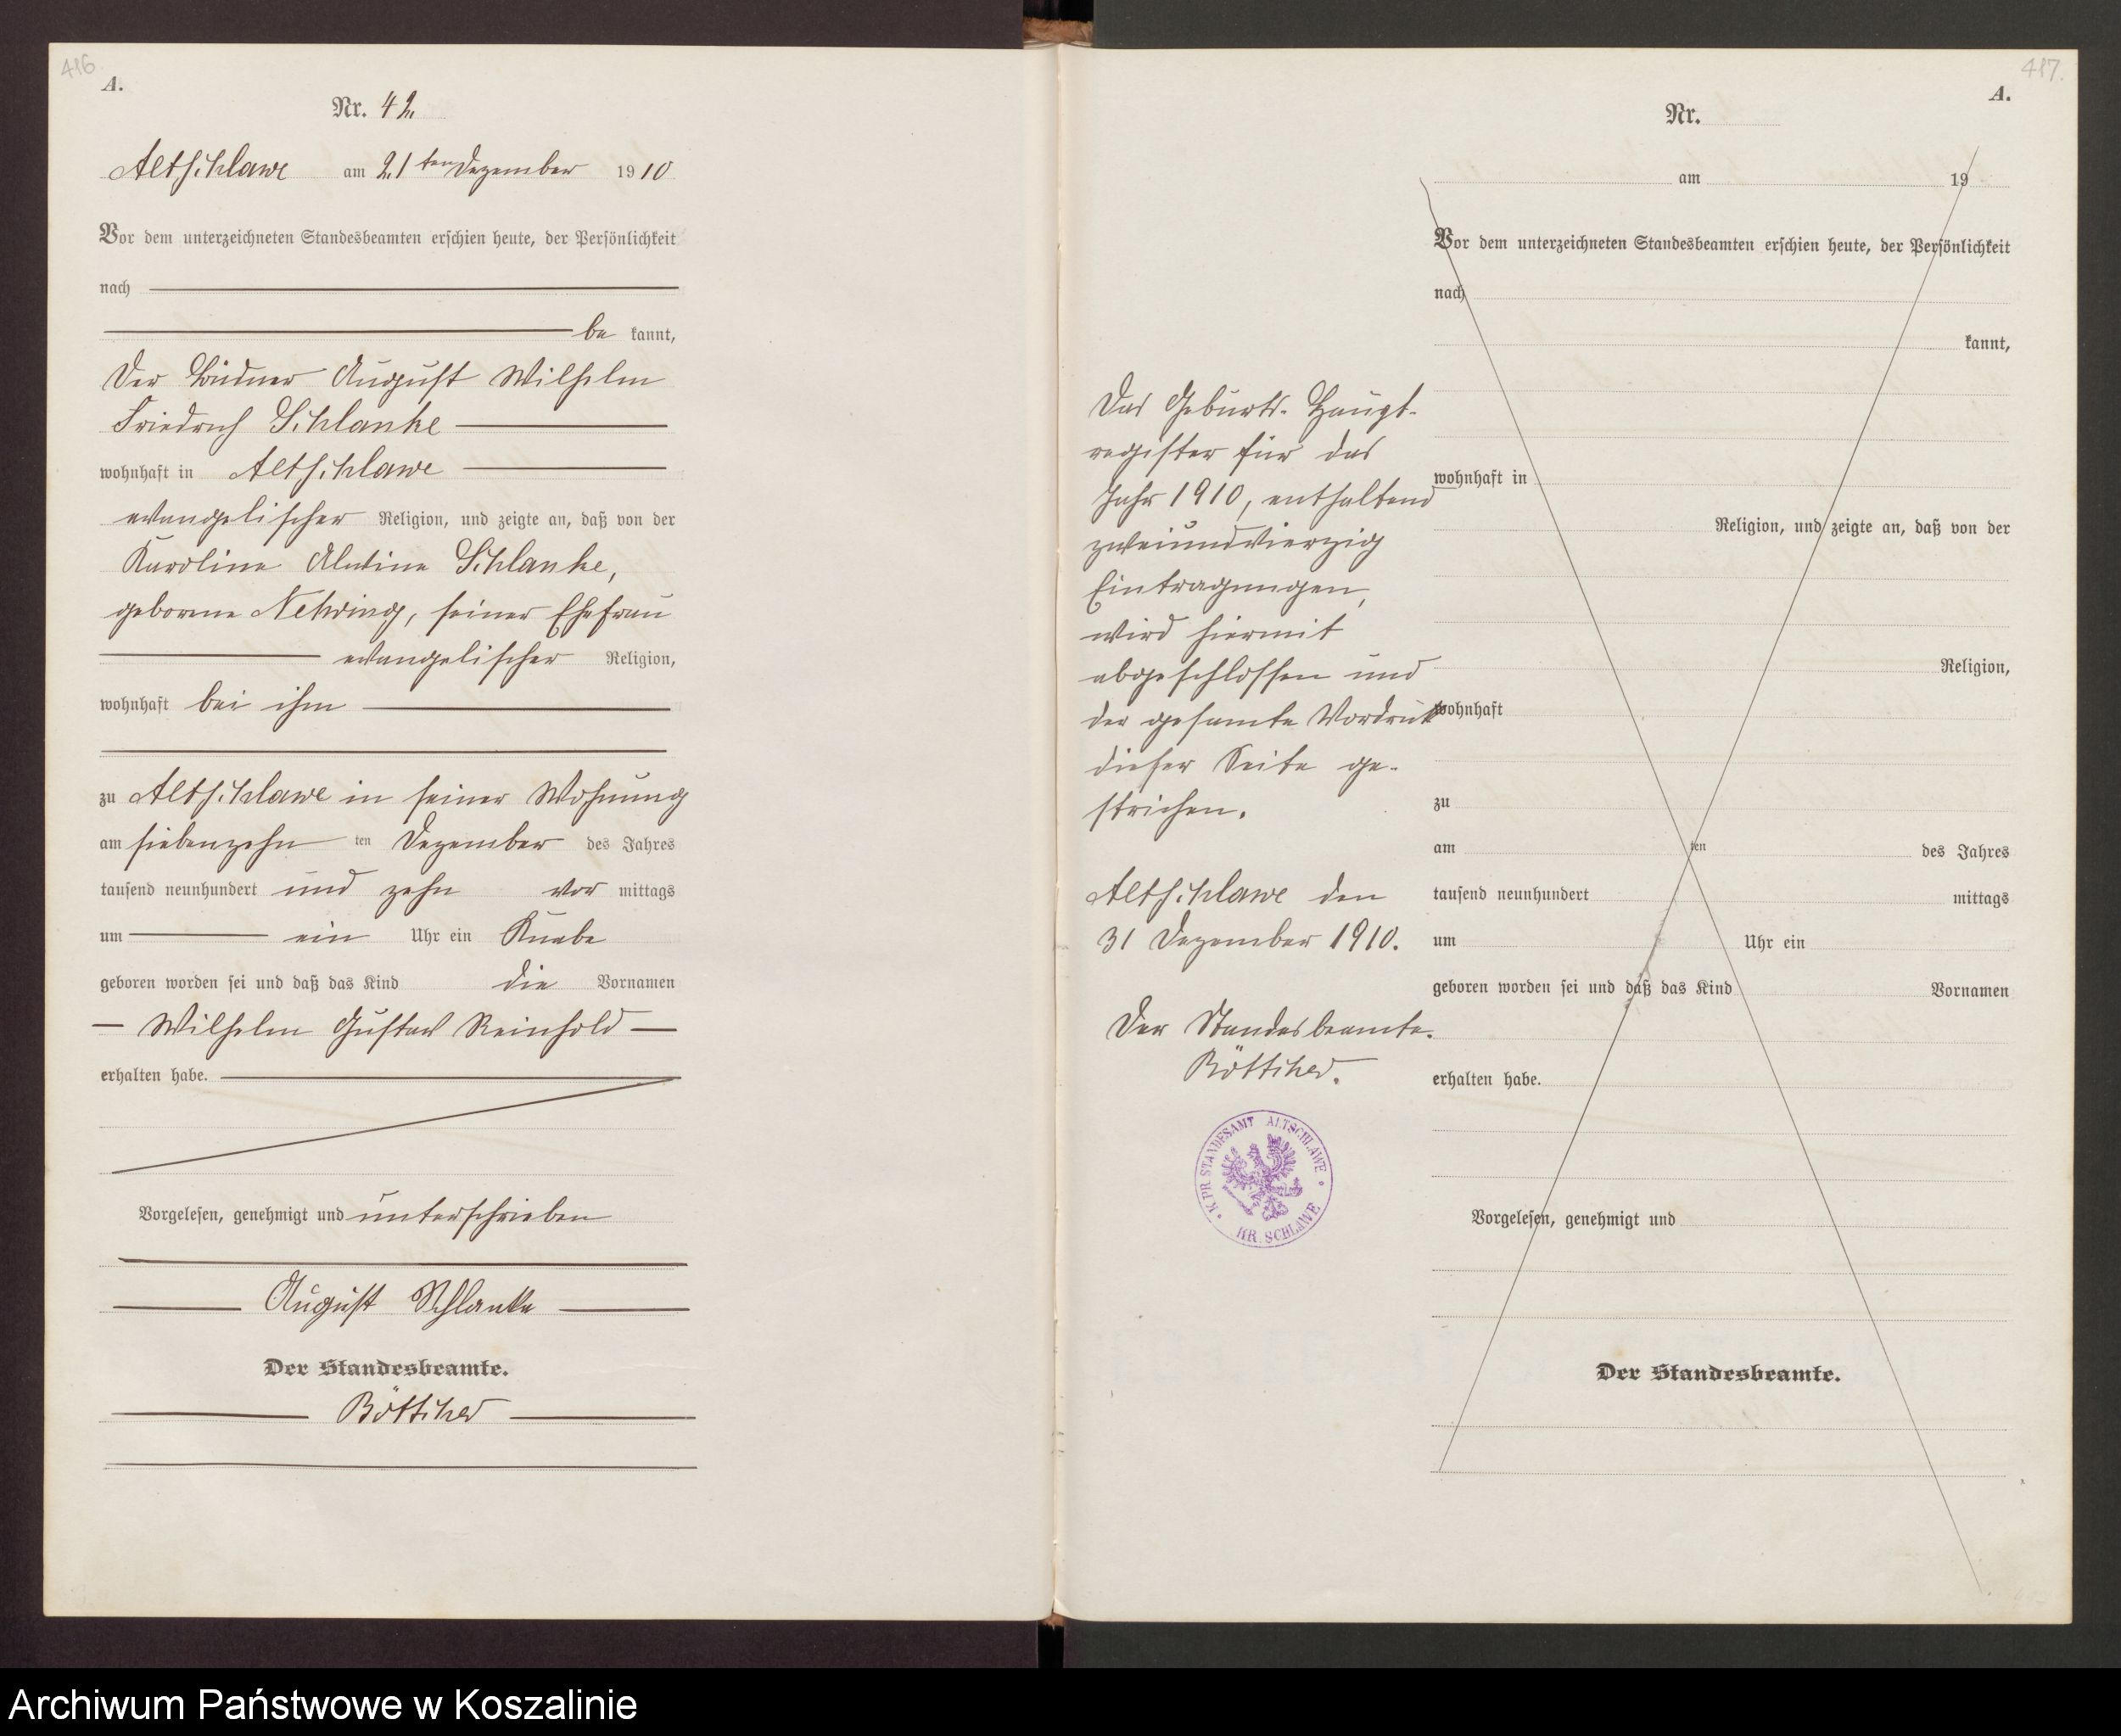 416
A.
Nr. 42.
Altschlawe am 21ten Dezember 1910
Vor dem unterzeichneten Standesbeamten erschien heute, der Persönlichkeit
nach
be kannt,
Der Büdner August Wilhelm
Friedrich Schlanke
wohnhaft in Altschlawe
evangelischer Religion, und zeigte an, daß von der
Karoline Alwine Schlanke,
geborene Nehring, seiner Ehefrau
evangelischer Religion,
wohnhaft bei ihm
zu Altschlawe in seiner Wohnung
am siebenzehn ten Dezember des Jahres
tausend neunhundert und zehn vor mittags
um ein Uhr ein Knabe
geboren worden sei und daß das Kind die Vornamen
Wilhelm Gustav Reinhold
erhalten habe.
Vorgelesen, genehmigt und unterschrieben
August Schlanke
Der Standesbeamte.
Böttcher
417.
A.
Nr.
am 19
Vor dem unterzeichneten Standesbeamten erschien heute, der Persönlichkeit
nach
kannt,
wohnhaft in
Religion, und zeigte an, daß von der
Religion,
wohnhaft
zu
am ten des Jahres
tausend neunhundert mittags
um Uhr ein
geboren worden sei und daß das Kind Vornamen
erhalten habe.
Vorgelesen, genehmigt und
Der Standesbeamte.
Das Geburts-Haupt-
register für das
Jahr 1910, enthaltend
zweiundvierzig
Eintragungen,
wird hiermit
abgeschlossen und
der gesamte Vordruck
dieser Seite ge-
strichen.
Altschlawe den
31 Dezember 1910.
Der Standesbeamte.
Böttcher.
K. PR. STANDESAMT ALTSCHLAWE
KR. SCHLAWE
Archiwum Państwowe w Koszalinie